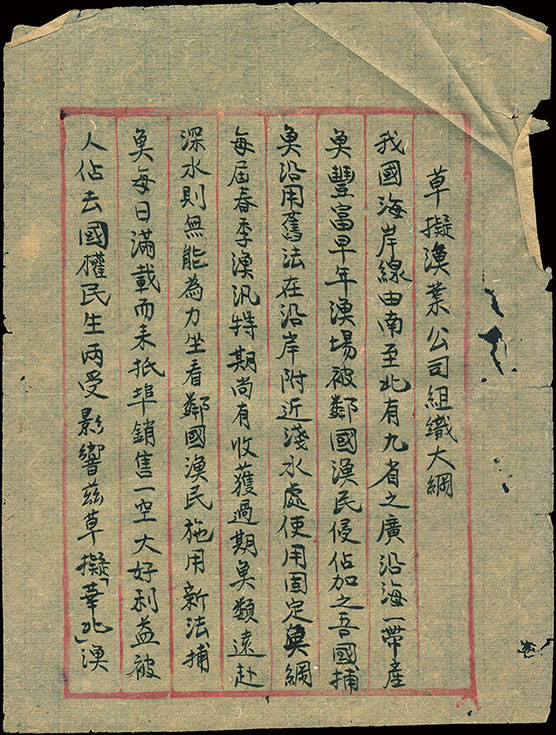 草擬漁業公司組織大綱
我國海岸線由南至北有九省之廣沿海一帶產
魚豐富早年漁場被鄰國漁民侵佔加之吾國捕
魚沿用舊法在沿岸附近淺水處使用固定魚網
每屆春季漁汛特期尚有收獲過期魚類遠赴
深水則無能為力坐看鄰國漁民施用新法捕
魚每日滿載而來抵埠銷售一空大好利益被
人佔去國權民生両受影響茲草擬「華北」漁